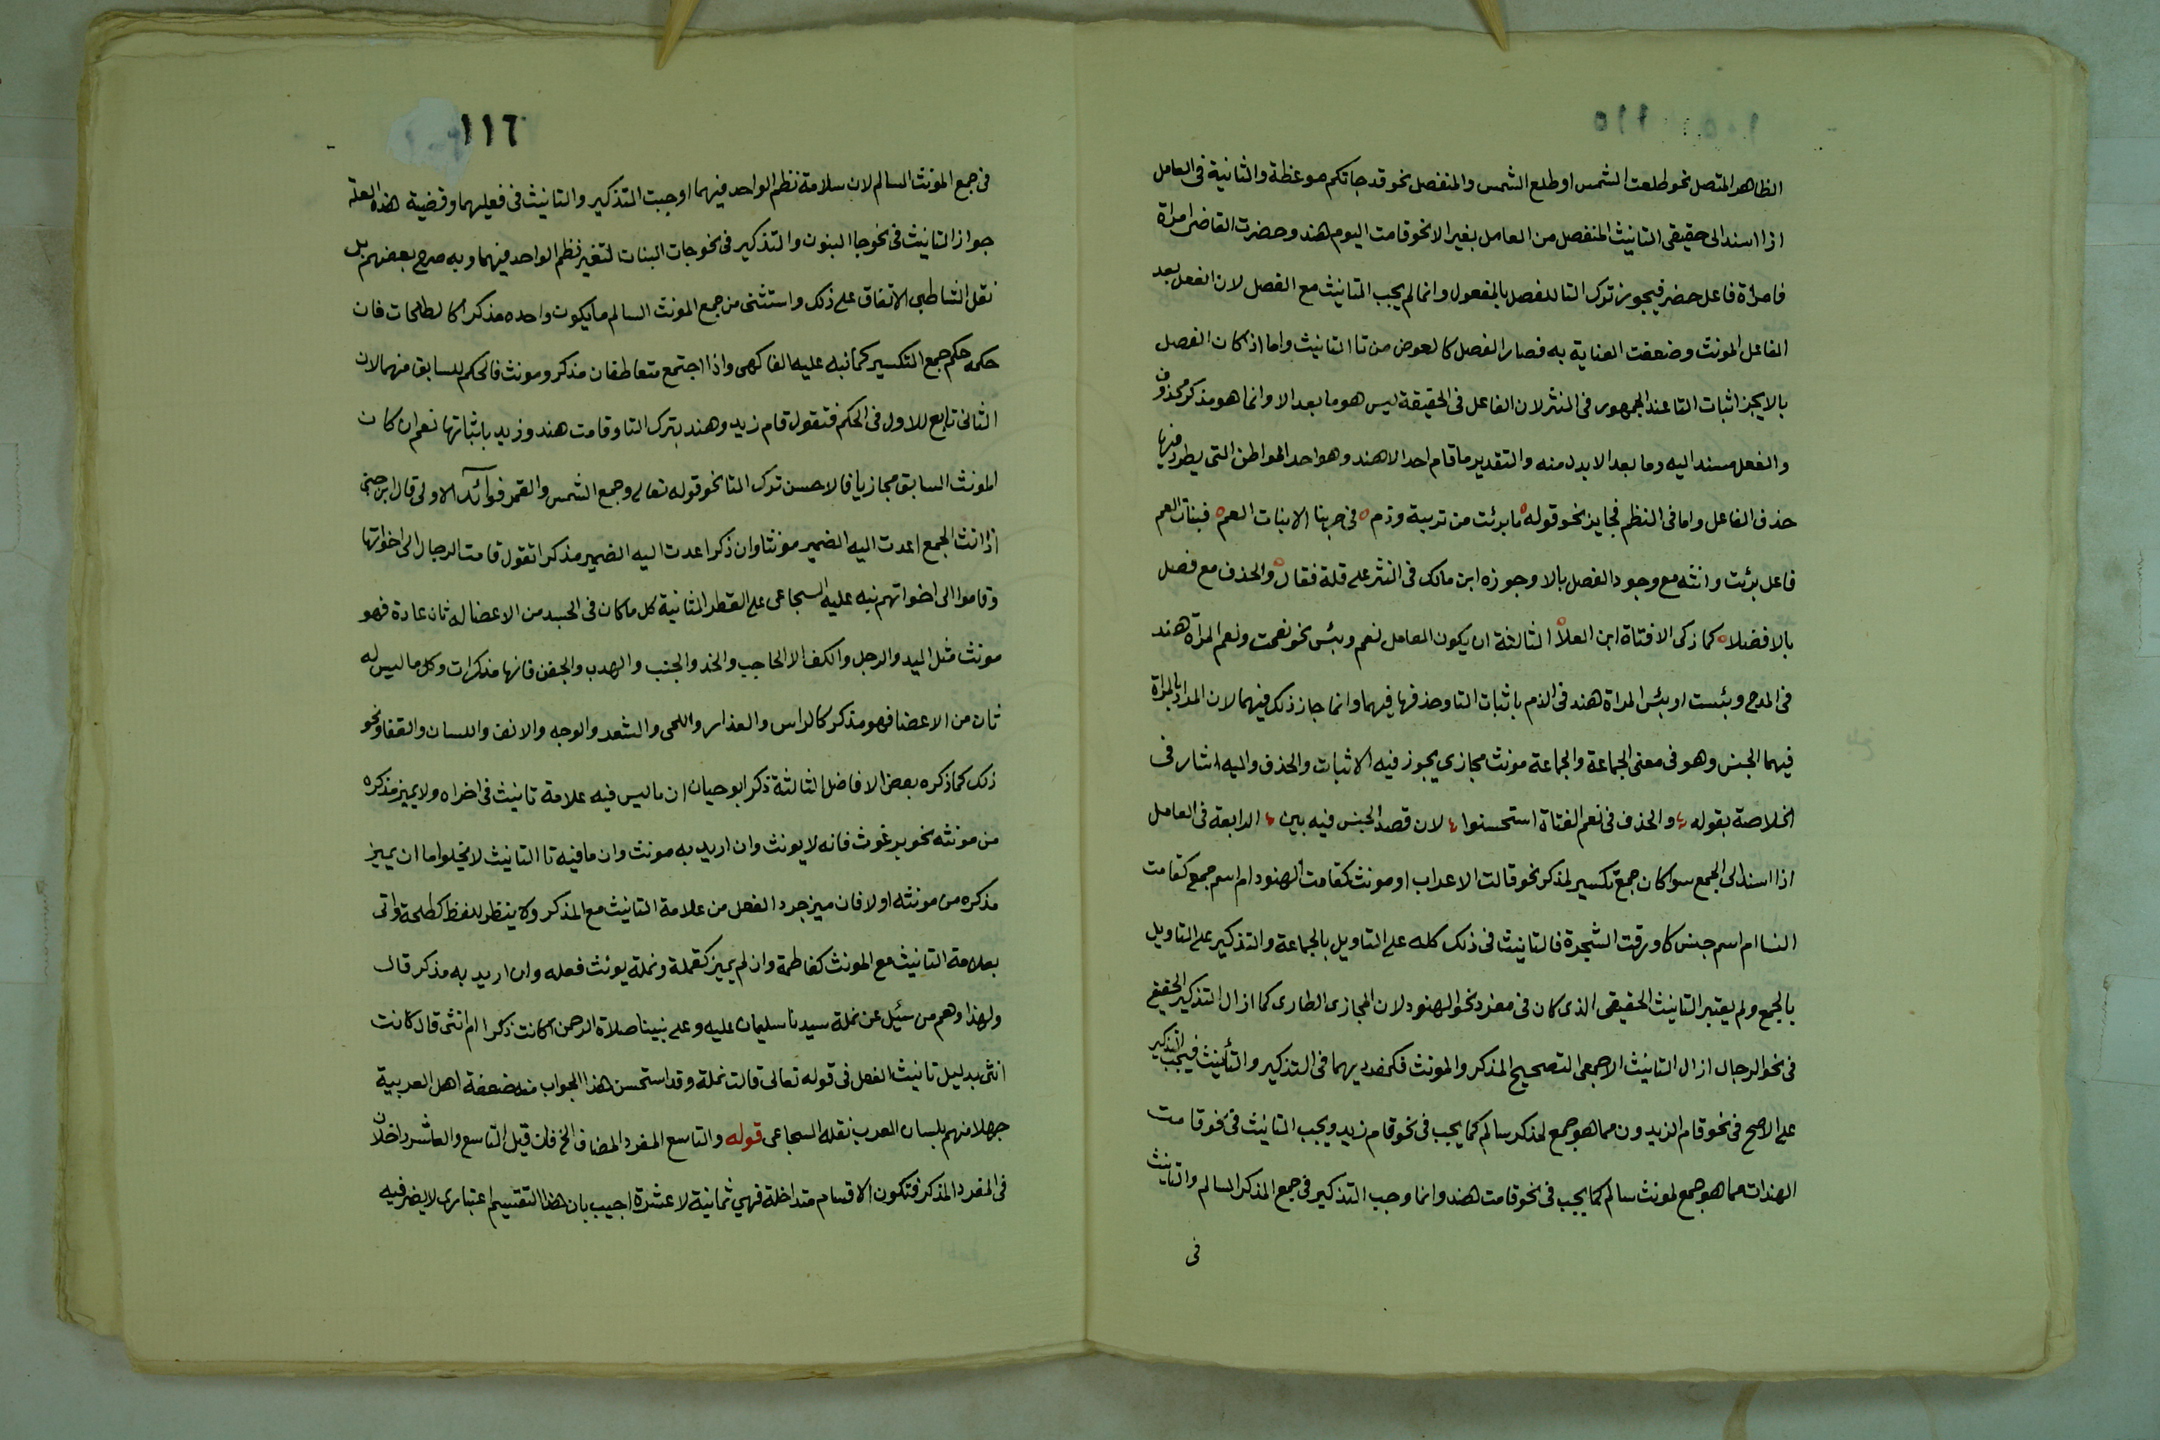 ١١٥
الظاهر المتصل نحو طلعت الشمس او طلع الشمس والمنفصل نحو قد جاتكم موعظة والثانية فى العامل
اذا اسند الى حقيقى التانيث المنفصل من العامل بغير الا نحو قامت اليوم هند وحضرت القاضى امراة
فامراة فاعل حضر فيجوز ترك التا للفصل بالمفعول وانما لم يجب التانيث مع الفصل لان الفعل بعد
الفاعل المونث وضعفت العناية به فصار الفصل كالعوض من تا التانيث واما اذا كان الفصل
بالا يجز اثبات التا عند الجمهور فى النثر لان الفاعل فى الحقيقة ليس هو ما بعد الا وانما هو مذكر محذوف
والفعل مسند اليه وما بعد الا بدل منه والتقدير ما قام احد الا هند وهو احد المواطن التى يطرد فيها
حذف الفاعل واما فى النظم فجايز نحو قوله ما برئت من تريبة وذم فى حربنا الا بنات العم فبنات العم
فاعل برئت وانثه مع وجود الفصل بالا وجوزه ابن مالك فى النثر على قلة فقال والحذف مع فصل
بالا فضلا كما زكى الا فتاة ابن العلا الثالثة ان يكون العامل نعم وبئس نحو نعمت ونعم المرأة هند
فى المدح وبئست او بئس المراة هند فى الذم باثبات التا وحذفها فيهما وانما جاز ذلك فيهما لان المراد بالمراة
فيهما الجنس وهو فى معنى الجماعة والجماعة مونث مجازى يجوز فيه الاثبات والحذف واليه اشار فى
الخلاصة بقوله والحذف فى نعم الفتاة استحسنوا لان قصد الجنس فيه بين الرابعة فى العامل
اذا اسند الى الجمع سوا كان جمع تكسير لمذكر نحو قالت الاعراب او مونث كقامت الهنود ام اسم جمع كقامت
النسا ام اسم جنس كاورقت الشجرة فالتانيث فى ذلك كله على التاويل بالجماعة والتذكير على التاويل
بالجمع ولم يعتبر التانيث الحقيقى الذى كان فى مفرد نحو الهنود لان المجازى الطارى كما ازال التذكير الحقيقى
فى نحو الرجال ازال التانيث الا جمعى التصحيح المذكر والمونث فكمفرديهما فى التذكير والتأنيث فيجب التذكير
على الاصح فى نحو قام الزيدون مما هو جمع لمذكر سالم كما يجب فى نحو قام زيد ويجب التانيث فى نحو قامت
الهندات مما هو جمع لمونث سالم كما يجب فى نحو قامت هند وانما وجب التذكير فى جمع المذكر السالم والتانيث
فى
١١٦
فى جمع المونث السالم لان سلامة نظم الواحد فيهما اوجبت التذكير والتانيث فى فعليهما وقضية هذه العلة
جواز التانيث فى نحو جا البنون والتذكير فى نحو جات البنات لتغير نظم الواحد فيهما وبه صرح بعضهم بل
نقل الشاطبى الاتفاق على ذلك واستثنى من جمع المونث السالم ما يكون واحده مذكرا كالطلحات فان
حكمه حكم جمع التكسير كما نبه عليه الفاكهى واذا اجتمع متعاطفان مذكر ومونث فالحكم للسابق منهما لان
الثانى تابع للاول فى الحكم فتقول قام زيد وهند بترك التا وقامت هند وزيد باثباتها نعم ان كان
المونث السابق مجازيا فالاحسن ترك التا نحو قوله تعالى وجمع الشمس والقمر فوائد الاولى قال ابن جنى
اذا انث الجمع اعدت اليه الضمير مونثا وان ذكر اعدت اليه الضمير مذكرا تقول قامت الرجال الى اخواتها
وقاموا الى اخواتهم نبه عليه السجاعى على القطر الثانية كل ما كان فى الجسد من الاعضا له ثان عادة فهو
مونث مثل اليد والرجل والكف الا الحاجب والخد والجنب والهدب والجفن فانها مذكرات وكل ما ليس له
ثان من الاعضا فهو مذكر كالراس والعذار واللحى والشعر والوجه والانف واللسان والقفا ونحو
ذلك كما ذكره بعض الافاضل الثالثة ذكر ابو حيان ان ما ليس فيه علامة تانيث فى اخراه ولا يميز مذكره
من مونثه نحو برغوث فانه لا يونث وان اريد به مونث وان ما فيه تا التانيث لا يخلوا اما ان يميز
مذكره من مونثه او لا فان ميز جرد الفعل من علامة التانيث مع المذكر ولا ينظر للفظ كطلحة واتى
بعلامة التانيث مع المونث كفاطمة وان لم يميز كقملة ونملة يونث فعله وان اريد به مذكر قال
ولهذا وهم من سئيل عن نملة سيدنا سليمان عليه وعلى نبينا صلاة الرحمن اكانت ذكرا ام انثى قال كانت
انثى بدليل تانيث الفعل فى قوله تعالى قالت نملة وقد استحسن هذا الجواب منه ضعفة اهل العربية
جهلا منهم بلسان العرب نقله السجاعى قوله والتاسع المفرد المضاف الخ فان قيل التاسع والعاشر داخلان
فى المفرد المذكر فتكون الاقسام متداخلة فهي ثمانية لا عشرة اجيب بان هذا التقسيم اعتبارى لا يضر فيه